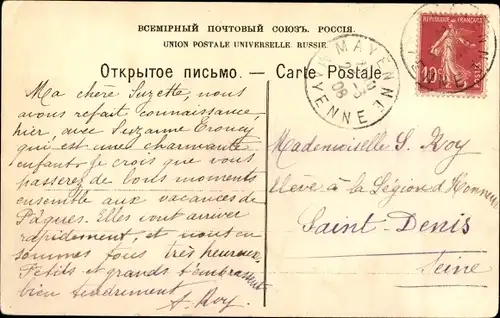 ВСЕМІРНЫЙ ПОЧТОВЫЙ СОЮЗЪ. РОССІЯ.
UNION POSTALE UNIVERSELLE. RUSSIE.
Открытое письмо. — Carte Postale
MAYENNE
08
MAYENNE
REPUBLIQUE FRANÇAISE
10c
Ma chère Suzette, nous
avons refait connaissance,
hier, avec Suzanne
qui est une charmante
enfant. Je crois que vous
passerez de bons moments
ensemble aux vacances de
Pâques. Elles vont arriver
rapidement, et nous en
sommes tous très heureux.
Petits et grands t'embrassent
bien tendrement. A. Roy.
Mademoiselle S. Roy
élève à la Légion d'Honneur
Saint-Denis
Seine